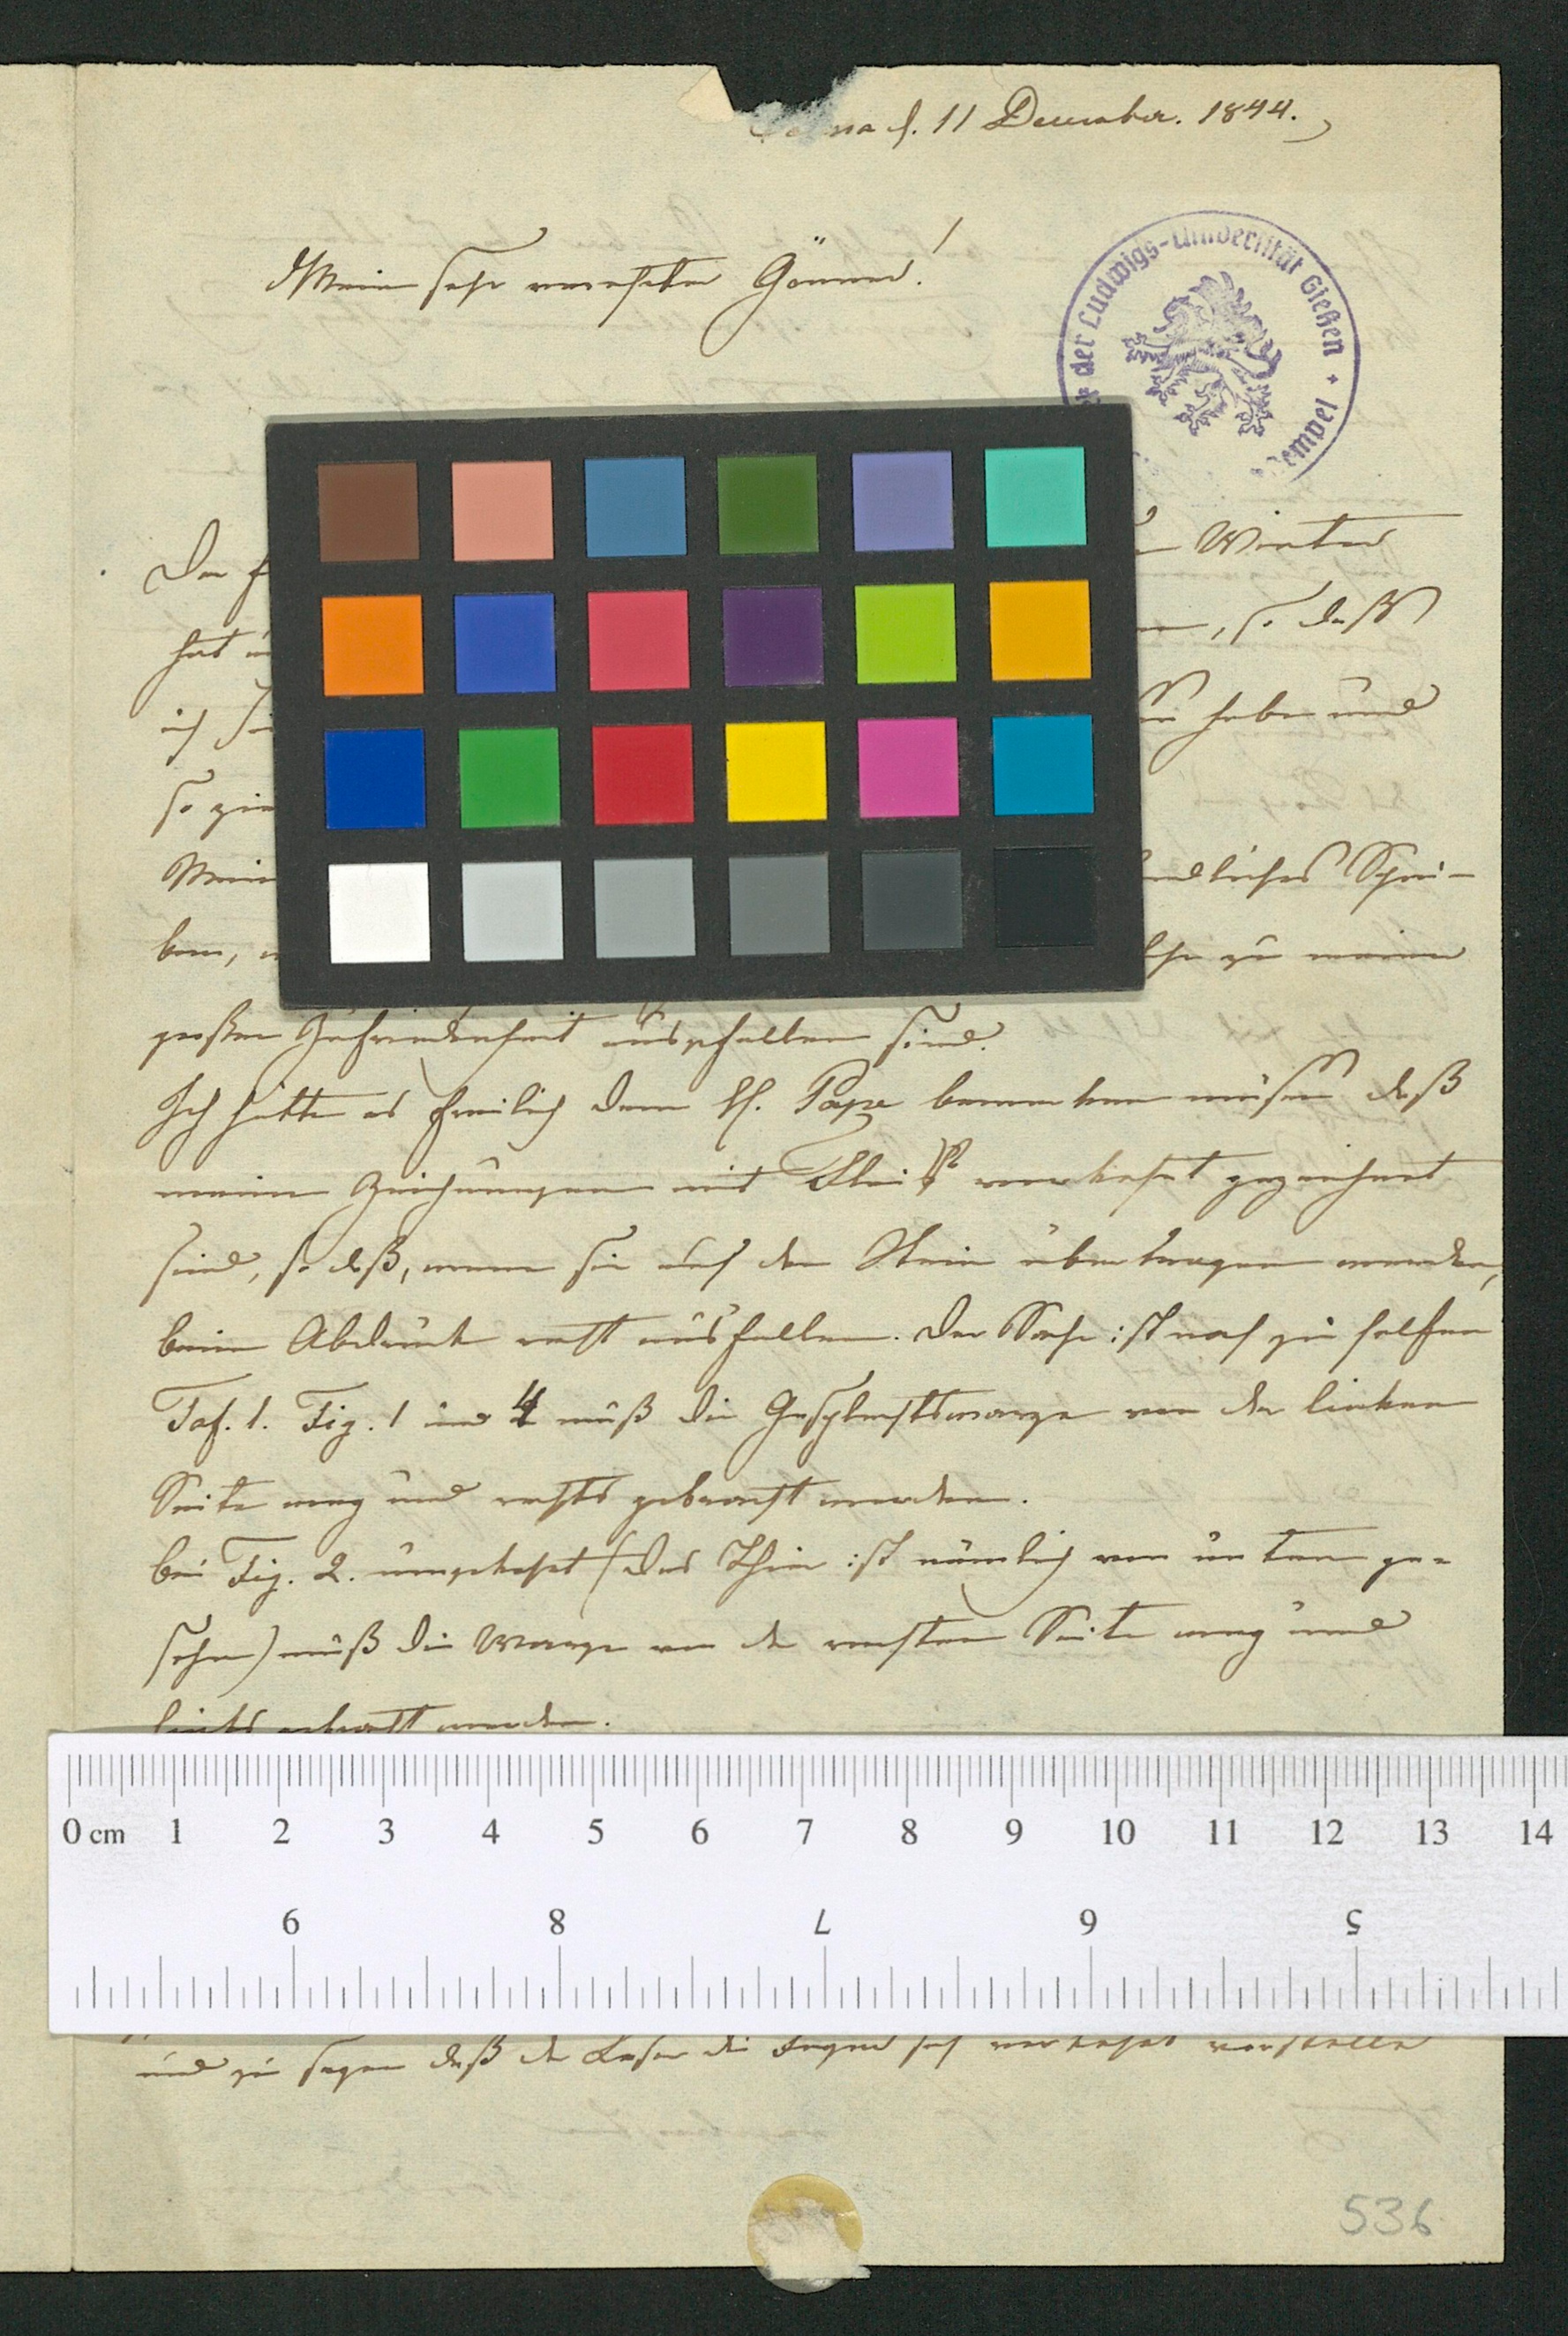 d. 11 December. 1844.
Mein sehr verehrter Gönner!
der Ludwigs-Universität Gießen +
Der Winter
hat , so daß
ich haben und
so
Mein Schrei-
ben, zu meiner
großen Zufriedenheit ausgefallen sind.
Ich hätte es freilich dem H. Pape bemerken müßen daß
meine Zeichnungen mit Fleiß verkehrt gezeichnet
sind, so daß, wenn sie auf den Stein übertragen werden,
beim Abdruck recht ausfallen. Der Sache ist noch zu helfen
Taf. 1. Fig. 1 und 4 muß die Geschlechtswarze von der linken
Seite weg und rechts gebracht werden.
bei Fig. 2. umgekehrt (das Thier ist nämlich von unten ge-
sehn) muß die Warze von der rechten Seite weg und
links gebracht werden.
0 cm 1 2 3 4 5 6 7 8 9 10 11 12 13 14
9 8 7 6 5
und zu sagen daß der Leser die Figur sich verkehrt vorstelle
536